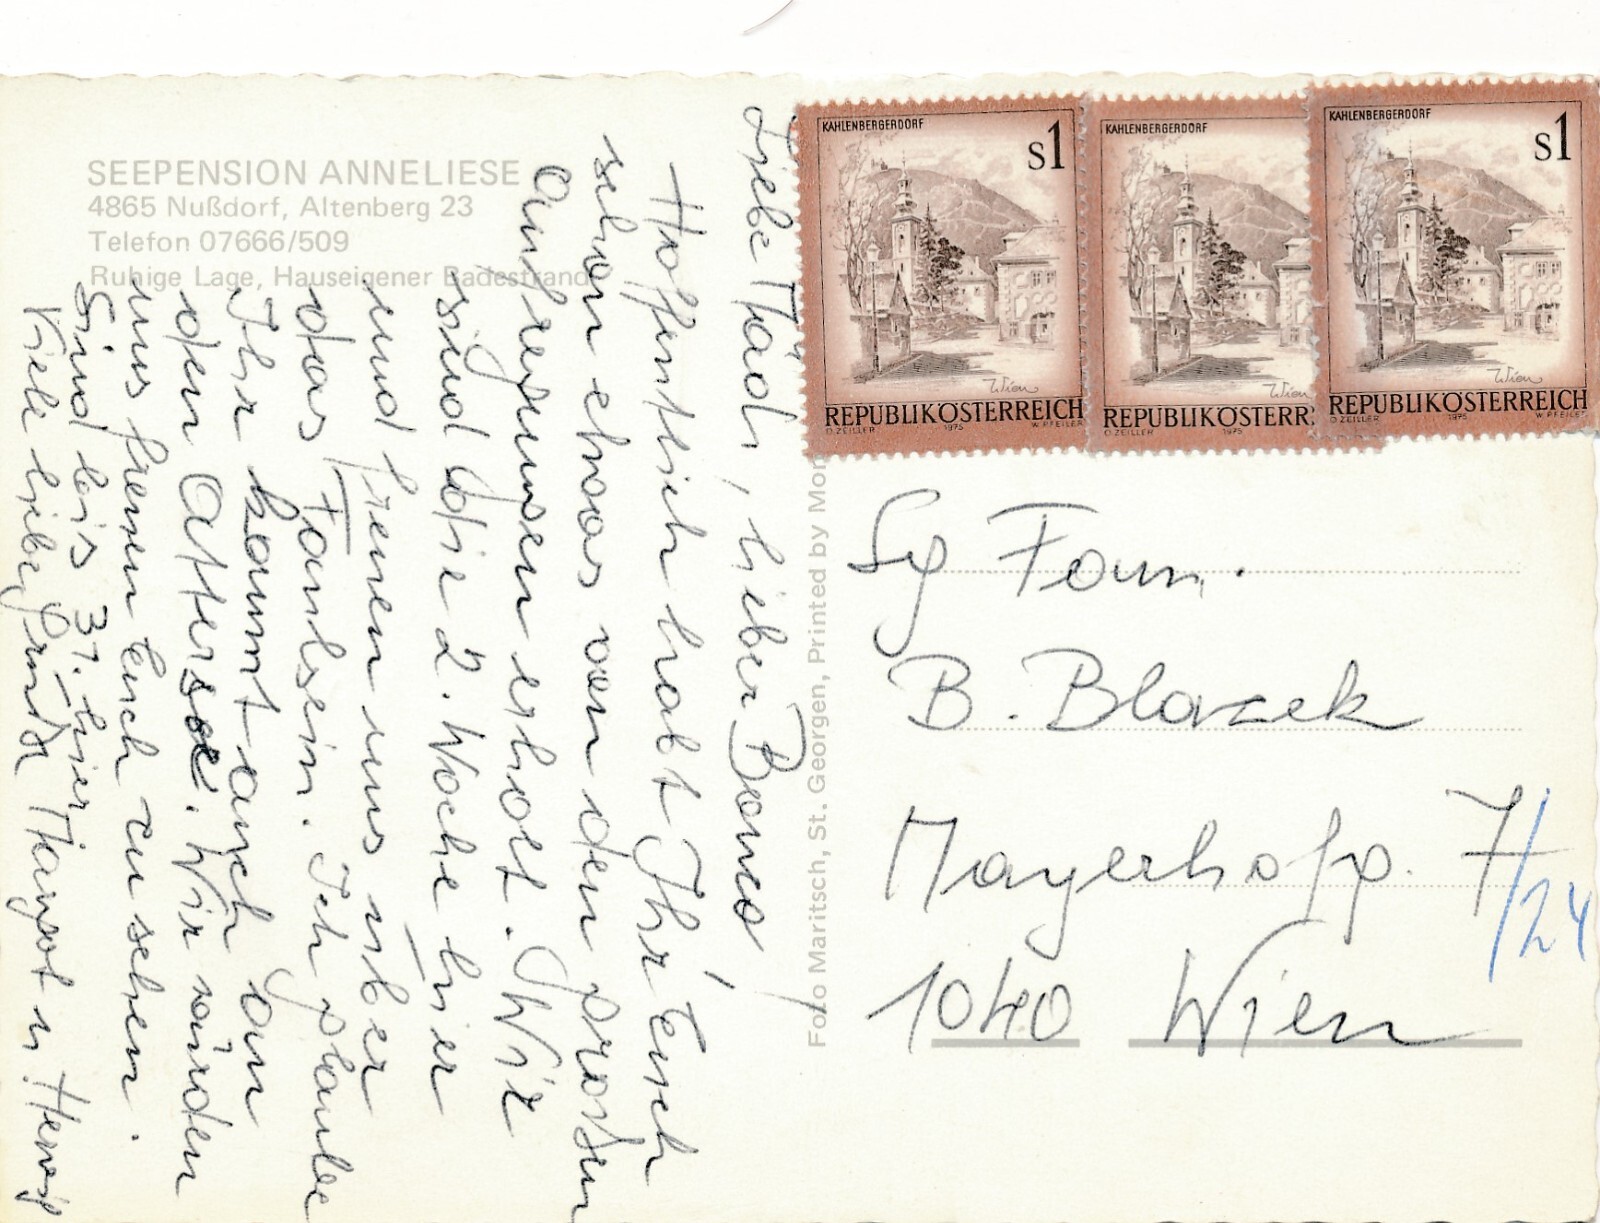 SEEPENSION ANNELIESE
4865 Nußdorf, Altenberg 23
Telefon 07666/509
Ruhige Lage, Hauseigener Badestrand
Liebe Maadi, lieber
Hoffentlich habt Ihr Euch
schon etwas von den großen
Aufregungen erholt. Wir
sind die 2. Woche hier
und freuen uns über
das Faulsein. Ich glaube
Ihr kommt auch gan
den Attersee. Wir würden
uns freuen Euch zu sehen.
Sind bis 31. hier
Viele liebe Grüße Margot u.
KAHLENBERGERDORF
S1
Wien
REPUBLIK ÖSTERREICH
O. ZEILLER 1975 W. PFEILER
KAHLENBERGERDORF
Wien
REPUBLIK ÖSTERR
O. ZEILLER 1975
KAHLENBERGERDORF
S1
Wien
REPUBLIK ÖSTERREICH
O. ZEILLER 1975 W. PFEILER
Foto Maritsch, St. Georgen, Printed by Mon
Sg Fam.
B. Blazek
Mayerhofg. 7/24
1040 Wien